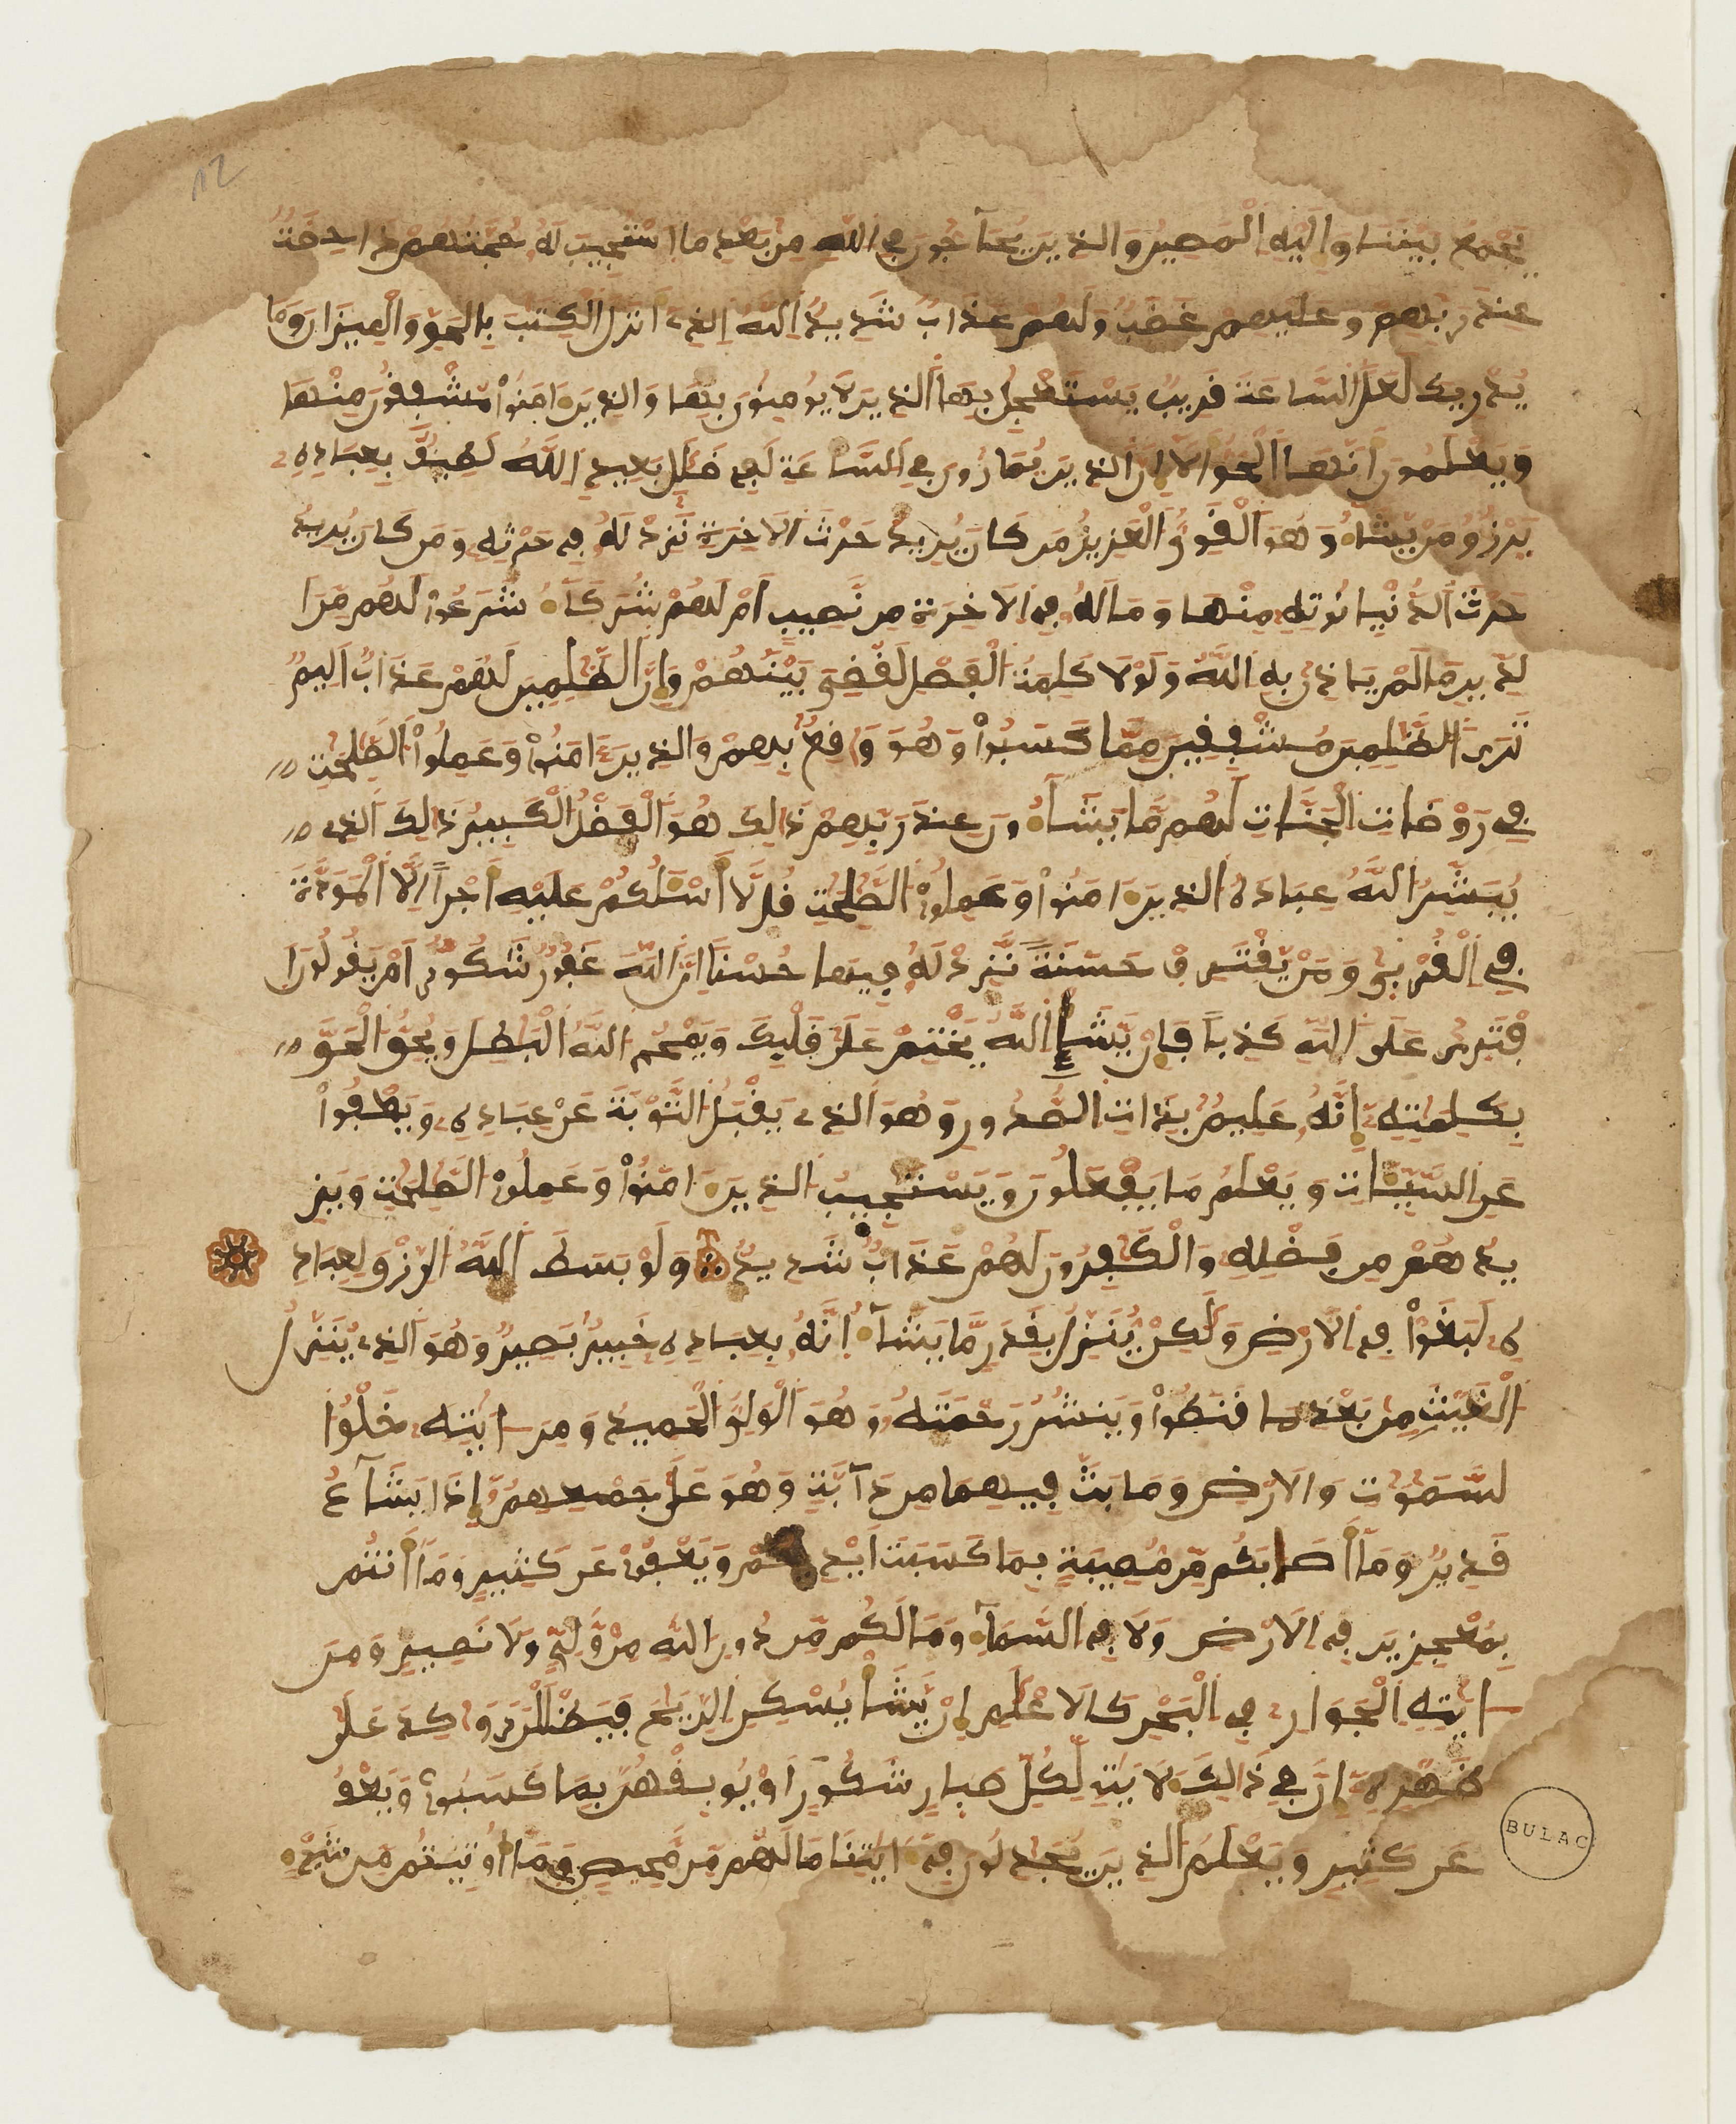 12
يجمع بيننا وإليه المصير والذين يحآجون في الله من بعد ما استجيب له حجتهم داحضة
عند ربهم وعليهم غضب ولهم عذاب شديد الله الذي أنزل الكتب بالحق والميزان وما
يدريك لعل الساعة قريب يستعجل بها الذين لا يومنون بها والذين ءامنوا مشفقون منها
ويعلمون أنها الحق ألا إن الذين يمارون في الساعة لفي ضلل بعيد الله لطيف بعباده
يرزق من يشاء وهو القوي العزيز من كان يريد حرث الاخرة نزد له في حرثه ومن كان يريد
حرث الدنيا نوته منها وماله في الاخرة من نصيب أم لهم شركاء شرعوا لهم من ا
لدين ما لم ياذن به الله ولولا كلمة الفصل لقضي بينهم وإن الظلمين لهم عذاب أليم
ترى الظلمين مشفقين مما كسبوا وهو واقع بهم والذين ءامنوا وعملوا الصلحت
في روضات الجنات لهم ما يشاءون عند ربهم ذالك هو الفضل الكبير ذالك الذي
يبشر الله عباده الذين ءامنوا وعملوا الصلحت قل لا أسئلكم عليه أجرا إلا المودة
في القربى ومن يقترف حسنة نزد له فيها حسنا إن الله غفور شكور أم يقولون ا
فترى على الله كذبا فإن يشإ الله يختم على قلبك ويمح الله البطل ويحق الحق
بكلمته إنه عليم بذات الصدور وهو الذي يقبل التوبة عن عباده ويعفوا
عن السيئات ويعلم ما يفعلون ويستجيب الذين ءامنوا وعملوا الصلحت ويز
يدهم من فضله والكفرون لهم عذاب شديد ولو بسط الله الرزق لعباد
ه لبغوا في الارض ولكن ينزل بقدر ما يشاء إنه بعباده خبير بصير وهو الذي ينزل
الغيث من بعد ما قنطوا وينشر رحمته وهو الولي الحميد ومن ءايته خلق ا
لسموت والارض وما بث فيهما من دآبة وهو على جمعهم إذا يشآء
قدير وما أصابكم من مصيبة بما كسبت أيديكم ويعفوا عن كثير وما أنتم
بمعجزين في الارض ولا في السماء وما لكم من دون الله من ولي ولا نصير ومن
ءايته الجوار في البحر كالاعلم إن يشأ يسكن الريح فيظللن رواكد على
ظهره إن في ذالك لايت لكل صبار شكور أو يوبقهن بما كسبوا ويعف
عن كثير ويعلم الذين يجدلون في ءايتنا ما لهم من محيص وما أوتيتم من شيء
BULAC